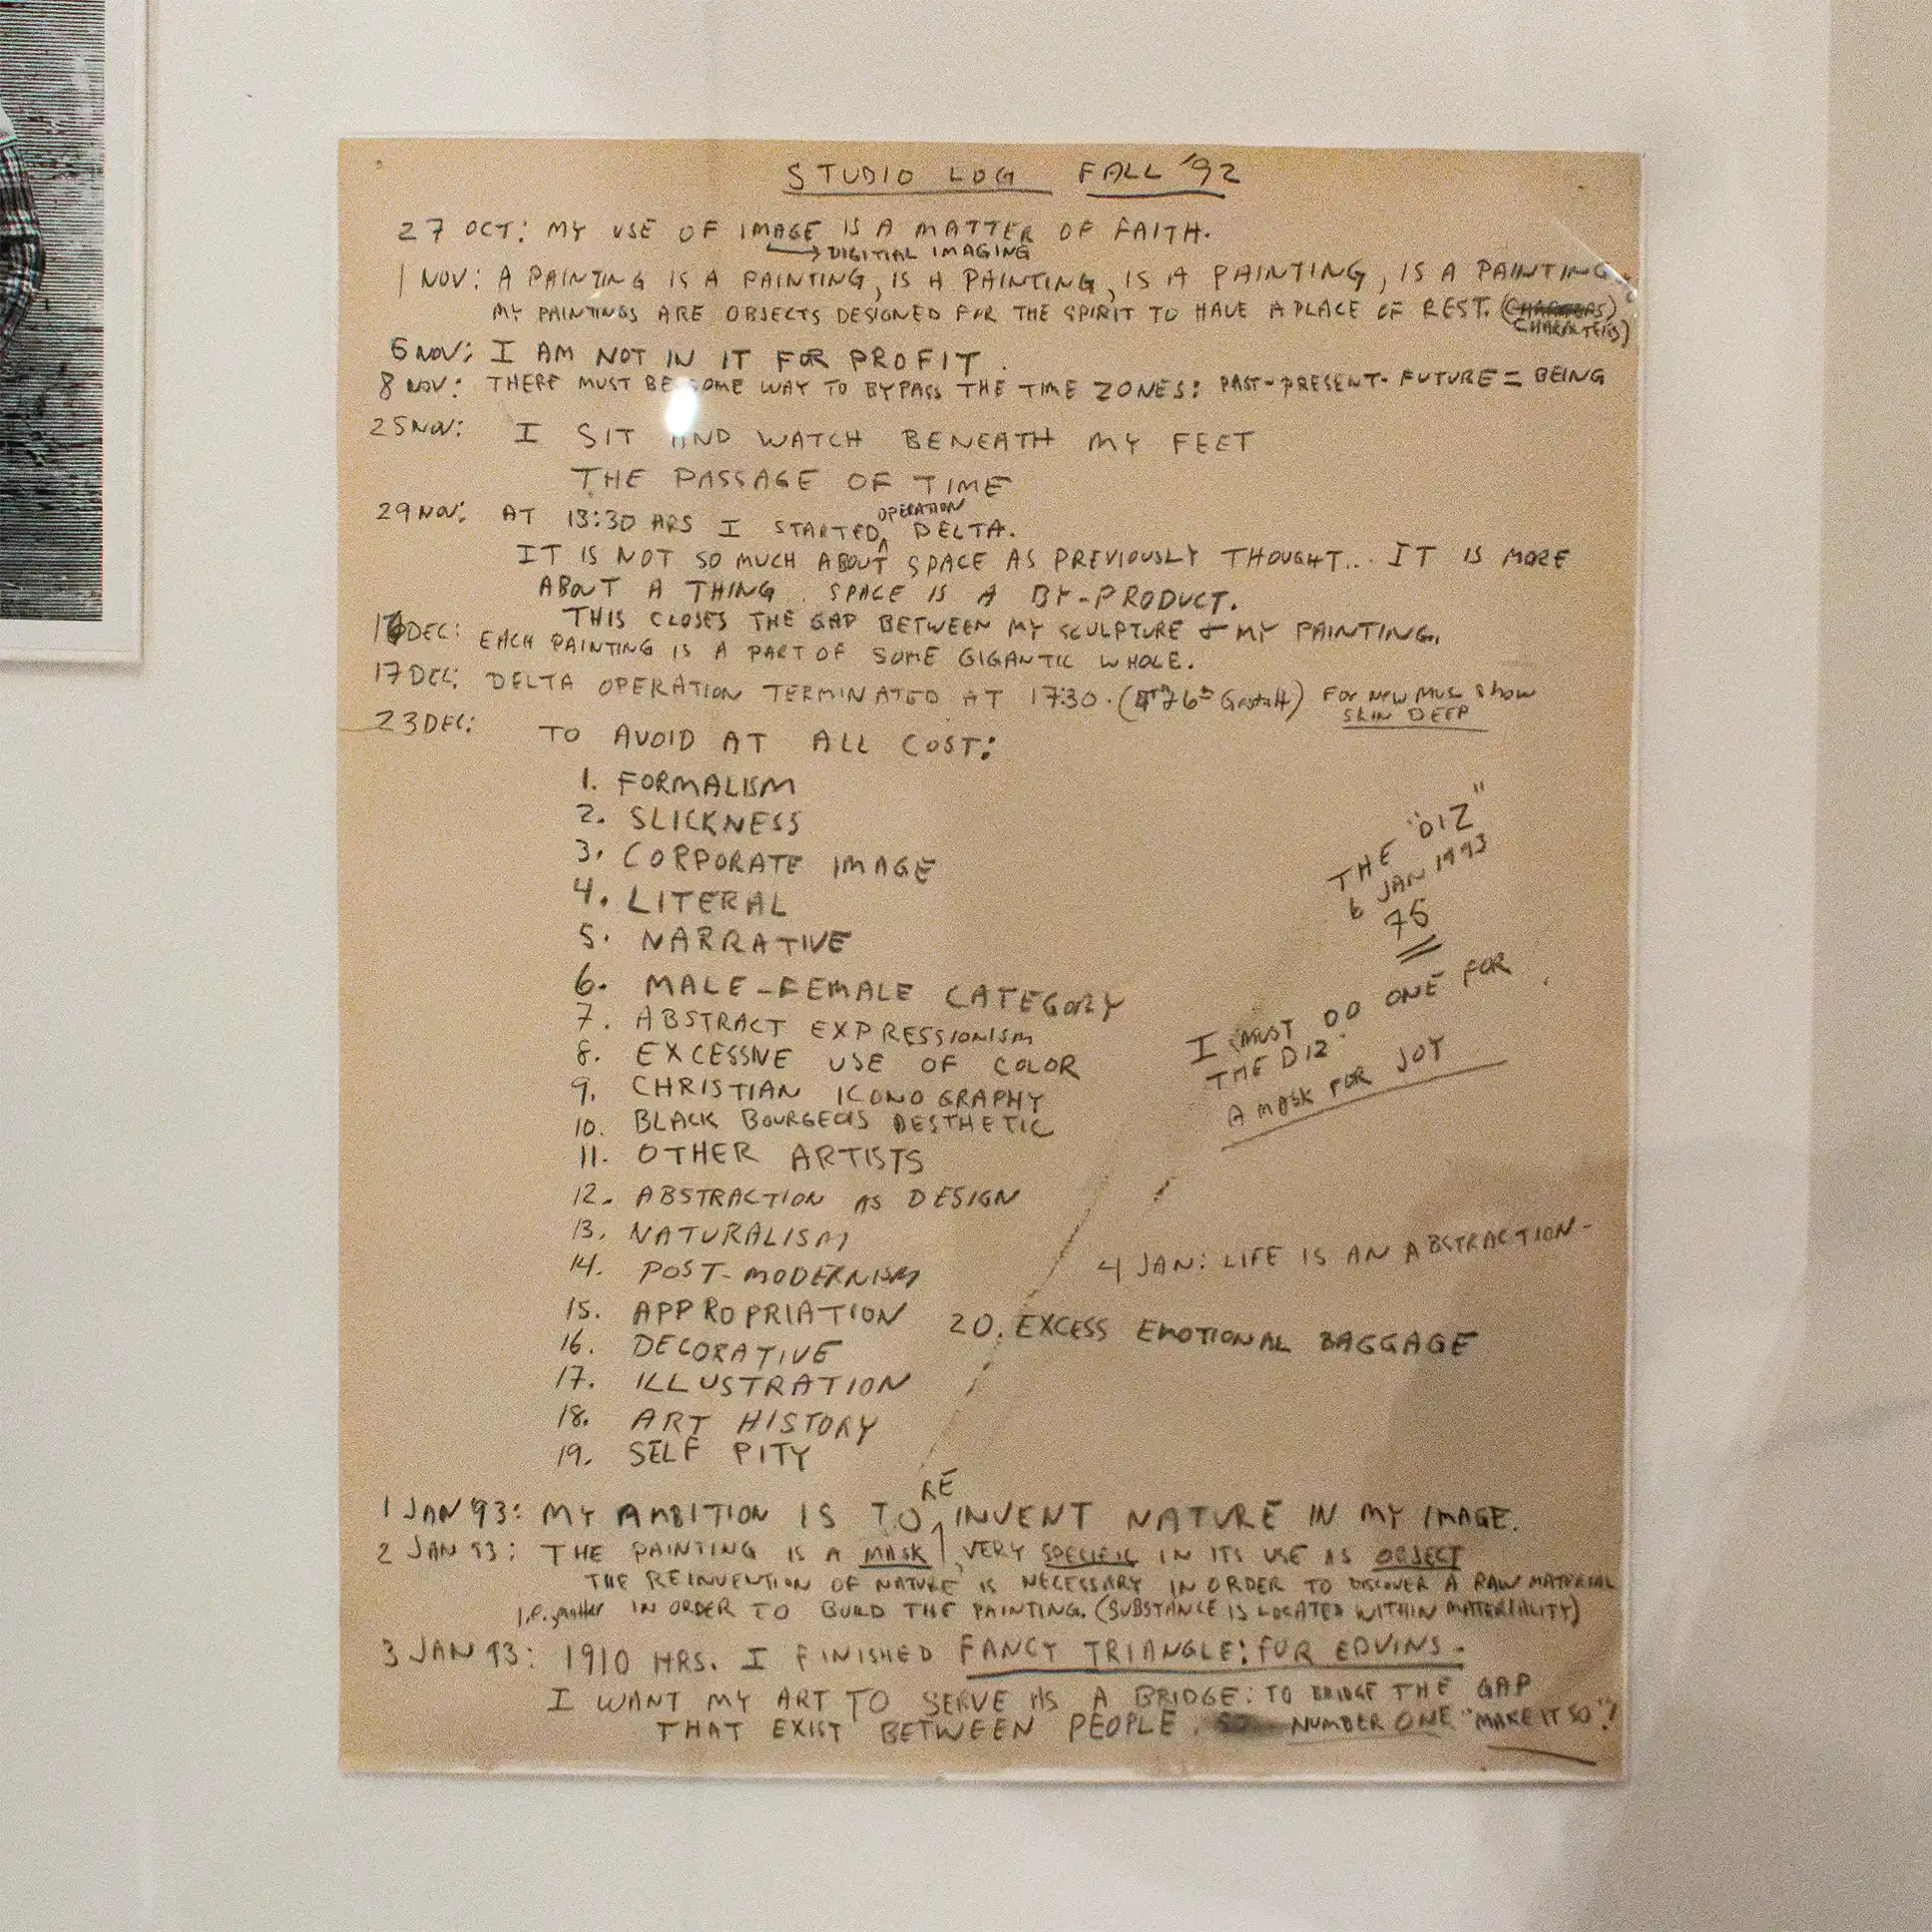 STUDIO LOG FALL '92
27 OCT: MY USE OF IMAGE IS A MATTER OF FAITH.
→ DIGITIAL IMAGING
1 NOV: A PAINTING IS A PAINTING, IS A PAINTING, IS A PAINTING, IS A PAINTING.
MY PAINTINGS ARE OBJECTS DESIGNED FOR THE SPIRIT TO HAVE A PLACE OF REST.
CHARACTERS)
6 NOV: I AM NOT IN IT FOR PROFIT.
8 NOV: THERE MUST BE SOME WAY TO BYPASS THE TIME ZONES: PAST-PRESENT-FUTURE = BEING
25 NOV: I SIT AND WATCH BENEATH MY FEET
THE PASSAGE OF TIME
OPERATION
29 NOV: AT 13:30 HRS I STARTED DELTA.
IT IS NOT SO MUCH ABOUT SPACE AS PREVIOUSLY THOUGHT... IT IS MORE
ABOUT A THING. SPACE IS A BY-PRODUCT.
THIS CLOSES THE GAP BETWEEN MY SCULPTURE & MY PAINTING.
DEC: EACH PAINTING IS A PART OF SOME GIGANTIC WHOLE.
17 DEC: DELTA OPERATION TERMINATED AT 17:30. Gestalt) FOR NEW MUS show
SKIN DEEP
23 DEC: TO AVOID AT ALL COST:
1. FORMALISM
2. SLICKNESS
3. CORPORATE IMAGE
4. LITERAL
5. NARRATIVE
6. MALE-FEMALE CATEGORY
7. ABSTRACT EXPRESSIONISM
8. EXCESSIVE USE OF COLOR
9. CHRISTIAN ICONOGRAPHY
10. BLACK BOURGEOIS AESTHETIC
11. OTHER ARTISTS
12. ABSTRACTION AS DESIGN
13. NATURALISM
14. POST-MODERNISM
15. APPROPRIATION
16. DECORATIVE
17. ILLUSTRATION
18. ART HISTORY
19. SELF PITY
20. EXCESS EMOTIONAL BAGGAGE
THE "DIZ"
6 JAN 1993
75
I MUST DO ONE FOR
THE DIZ.
A MASK FOR JOY
4 JAN: LIFE IS AN ABSTRACTION-
RE
1 JAN '93: MY AMBITION IS TO INVENT NATURE IN MY IMAGE.
2 JAN 93: THE PAINTING IS A MASK, VERY SPECIFIC IN ITS USE AS OBJECT
THE REINVENTION OF NATURE IS NECESSARY IN ORDER TO DISCOVER A RAW MATERIAL
i.e. matter IN ORDER TO BUILD THE PAINTING. (SUBSTANCE IS LOCATED WITHIN MATERIALITY)
3 JAN 93: 1910 HRS. I FINISHED FANCY TRIANGLE: FOR EDVINS.
I WANT MY ART TO SERVE AS A BRIDGE: TO BRIDGE THE GAP
THAT EXIST BETWEEN PEOPLE. NUMBER ONE "MAKE IT SO"!